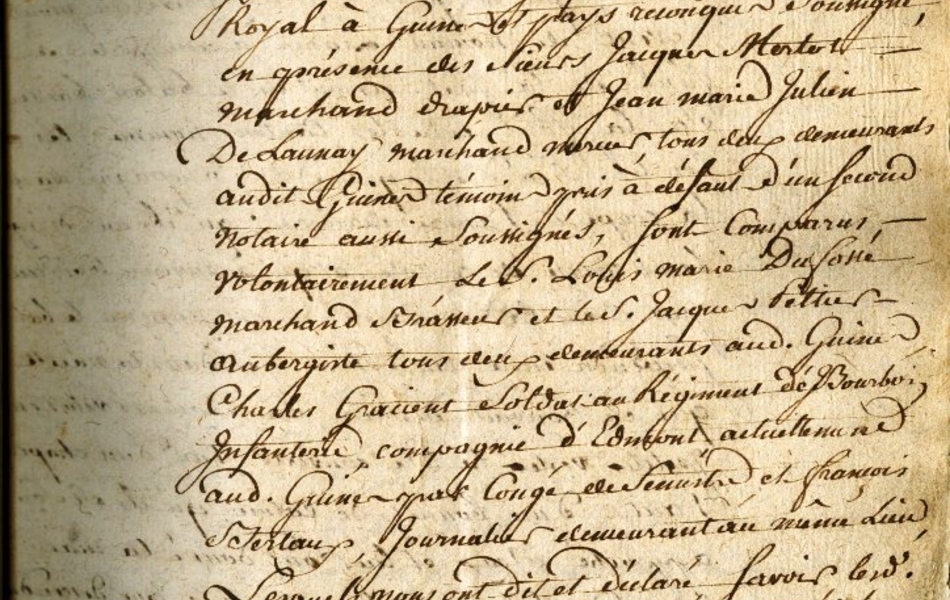 Royal à Guines et pays reconquis soussigné,
en présence des sieurs Jacques Mertot
marchand drapier et Jean marie Julien
De Launay marchand mercier tous deux demeurants
audit Guines témoins pris à défaut d'un second
Notaire aussi Soussignés, sont Comparus
volontairement Le S. Louis marie Dufossé
marchand Brasseur et le S. Jacques Peltier
aubergiste tous deux demeurants aud. Guines
Charles Gracient Soldat au Régiment de Bourbon
Infanterie, compagnie d'Edmont actuellement
aud. Guines par Congé de Semestre et françois
Journalier demeurant au même Lieu
Lesquels nous ont dit et déclaré savoir led.